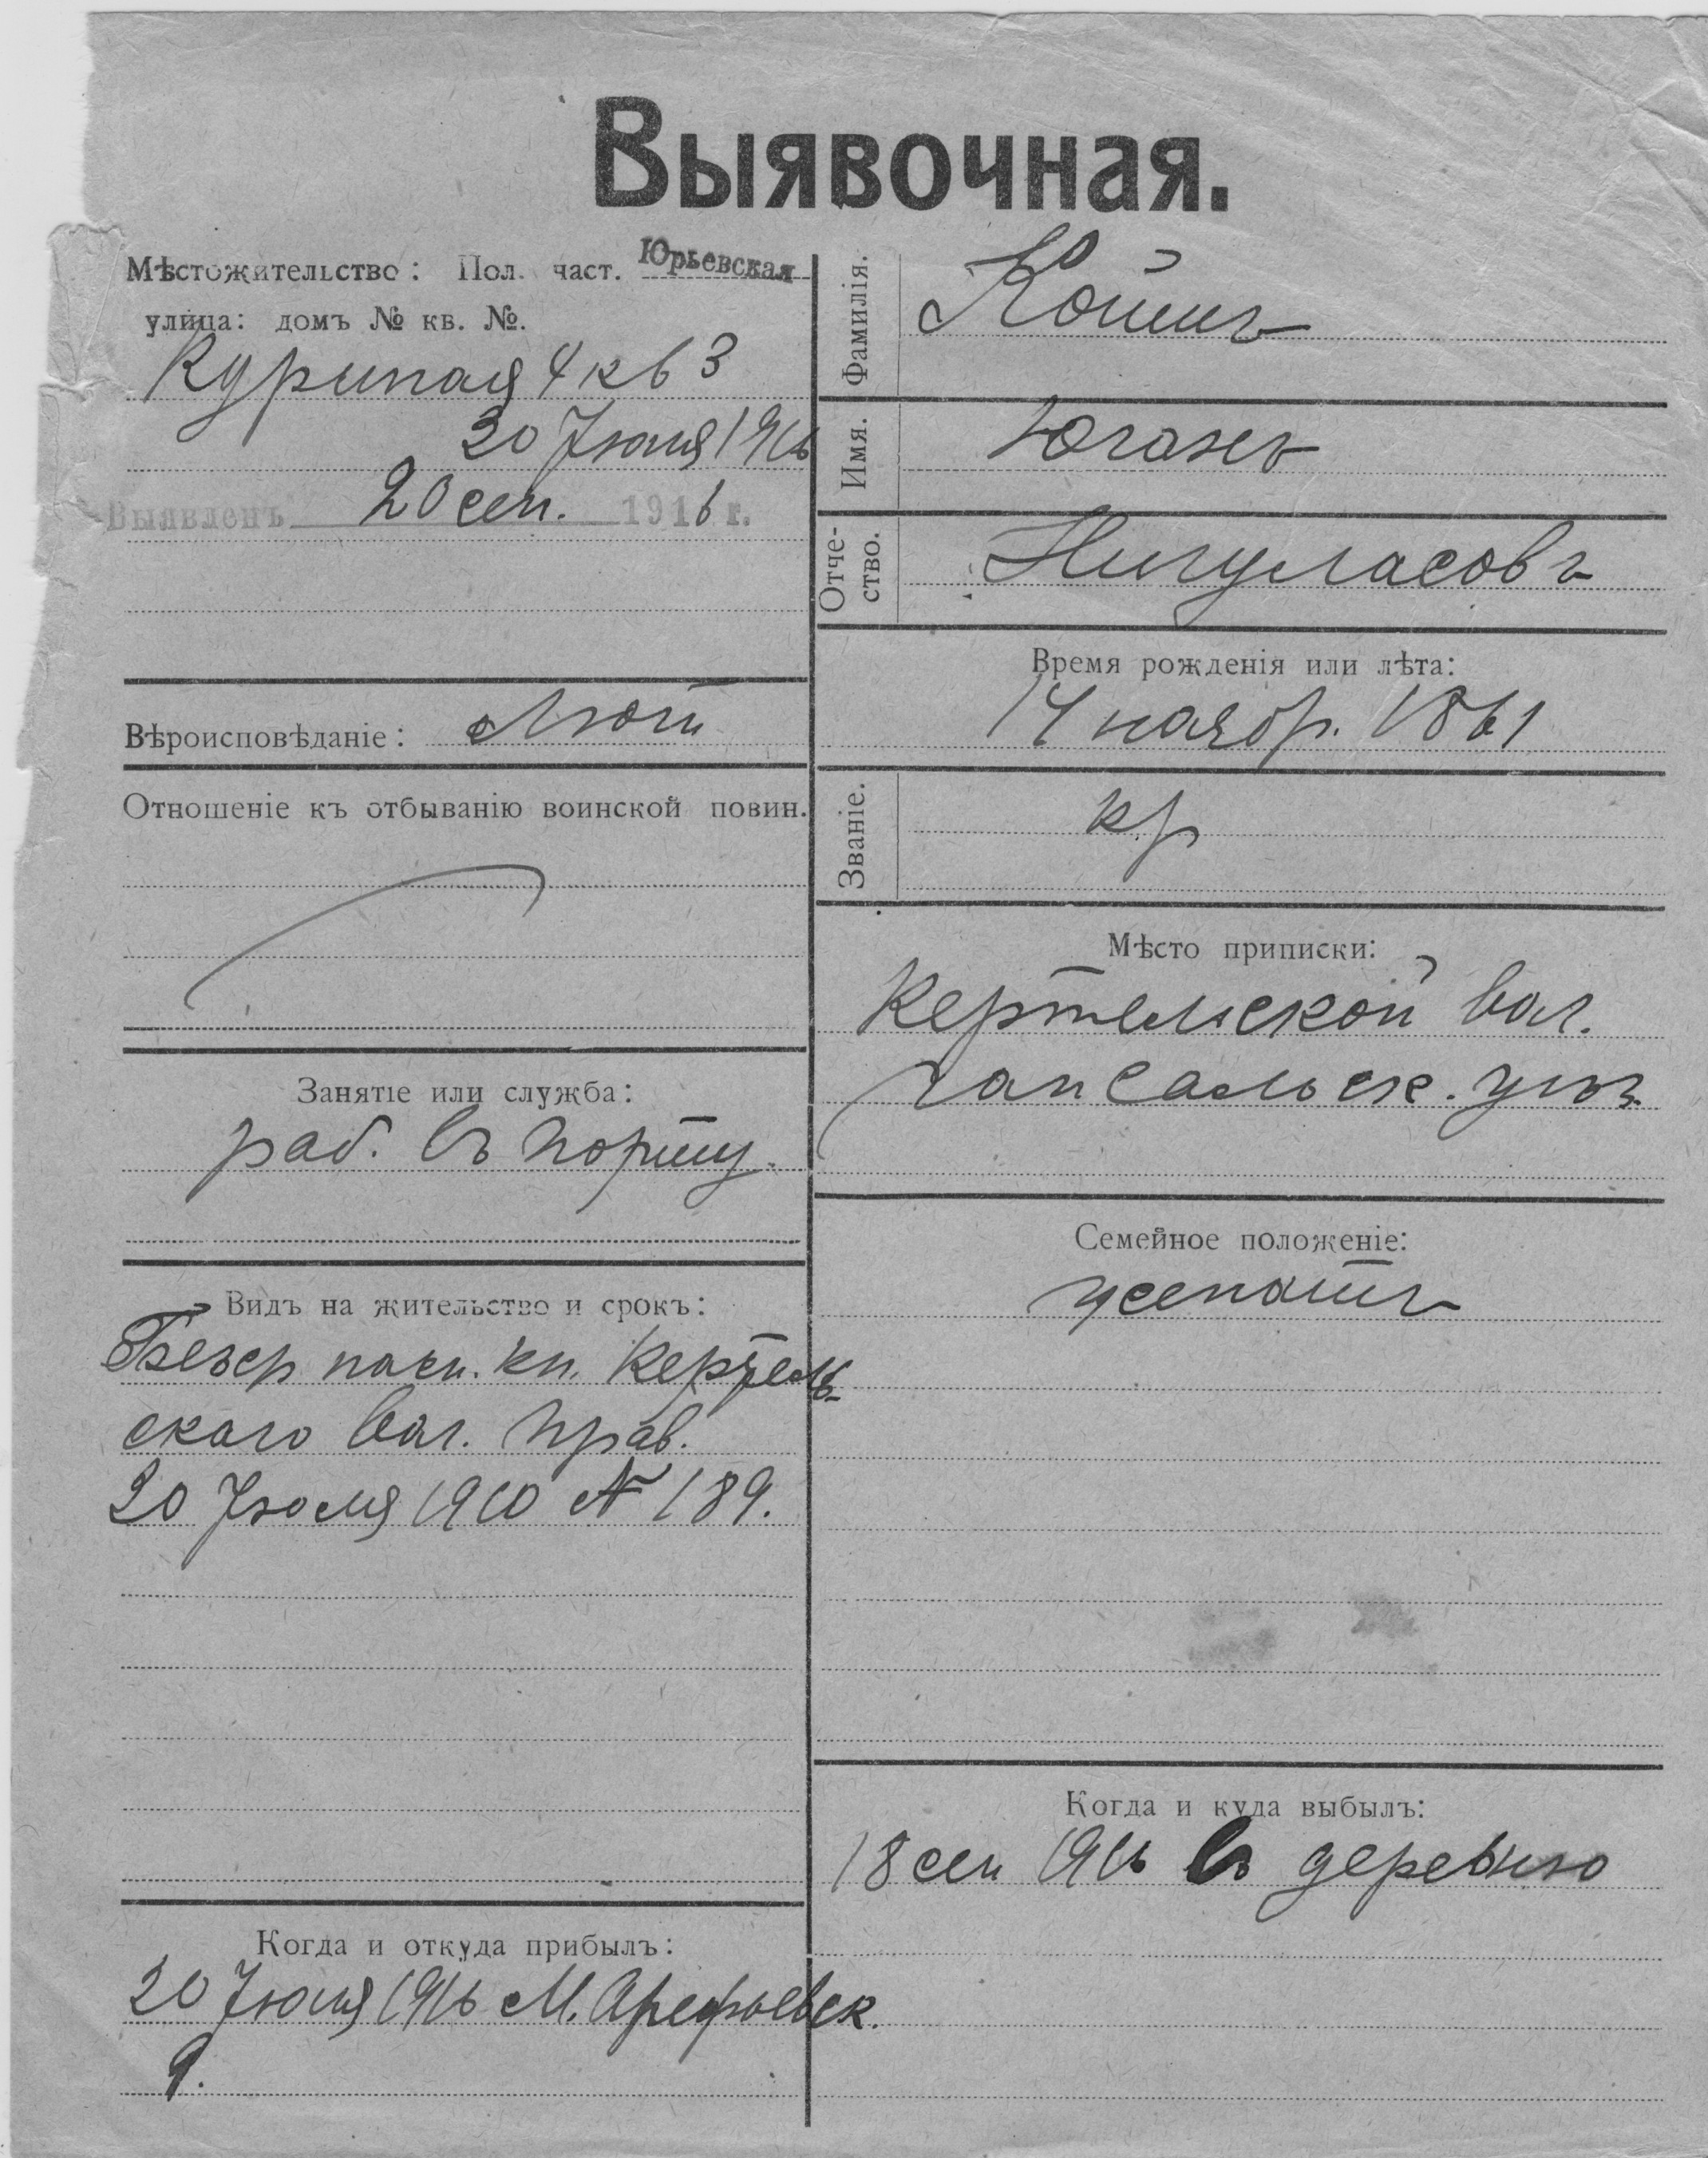 Выявочная.
Мѣстожительство: Пол. част. Юрьевская
улица: домъ № кв. №.
Куриная 4 кв 3
20 Іюля 1916
Выявленъ 20 сен. 1916 г.
Вѣроисповѣданіе: Лют
Отношеніе къ отбыванію воинской повин.
Занятіе или служба:
раб. въ порту.
Видъ на жительство и срокъ:
Безср пасп. кн. Кертель-
скаго вол. прав.
20 Іюля 1910 № 189.
Когда и откуда прибылъ:
20 Іюля 1916 М. Арефьевск.
9.
Фамилія.
Имя. Юганъ
Отче-
ство. Нигуласовъ
Время рожденія или лѣта:
14 ноябр. 1861
Званіе. кр
Мѣсто приписки:
Кертельской вол.
Гапсальск. уѣз.
Семейное положеніе:
женатъ
Когда и куда выбылъ:
18 сен 1916 въ деревню